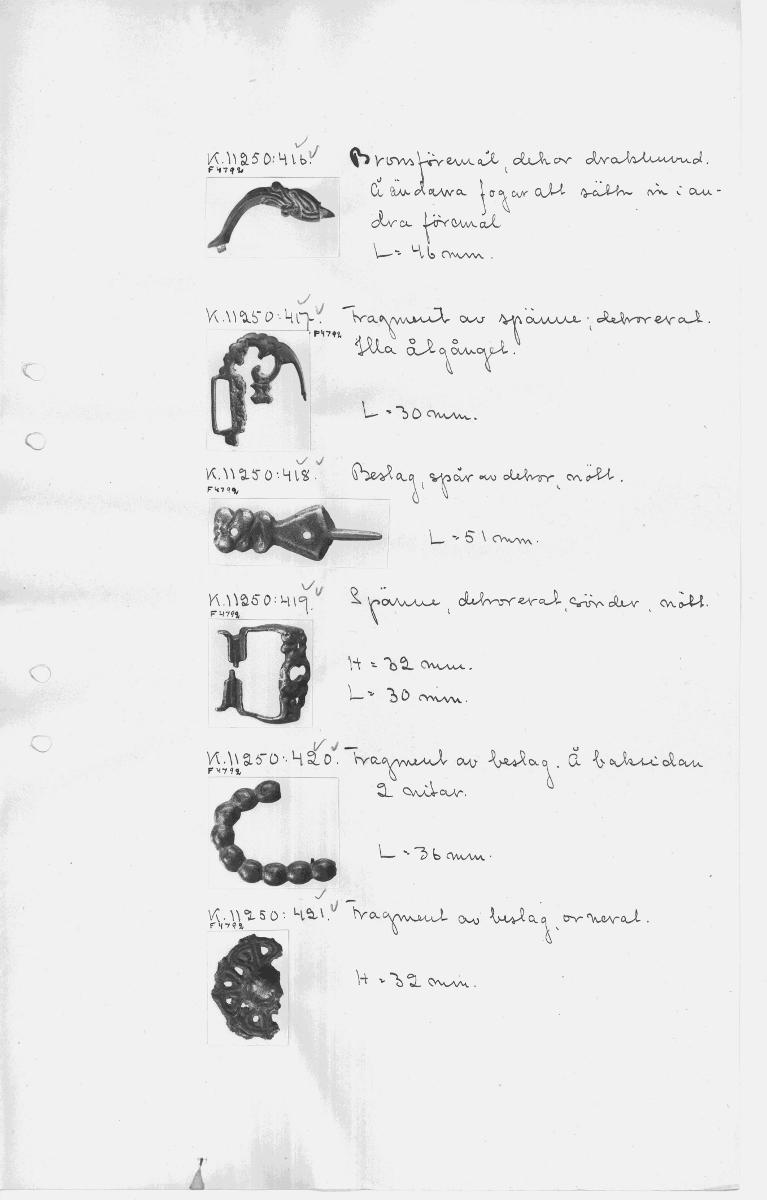 K.11250:416. Bronsföremål, dekor drakhuvud.
F4792
Å ändarna fogar att sätta in i an-
dra föremål
L= 46 mm.
K.11250:417. Fragment av spänne; dekorerat.
F4792
Illa åtgånget.
L=30 mm.
K.11250:418. Beslag, spår av dekor, nött.
F4792
L=51 mm.
K.11250:419. Spänne, dekorerat, sönder, nött.
F4792
H = 32 mm.
L= 30 mm.
K.11250:420. Fragment av beslag. Å baksidan
F4792
2 nitar.
L=36 mm.
K.11250:421. Fragment av beslag, ornerat.
F4792
H=32 mm.